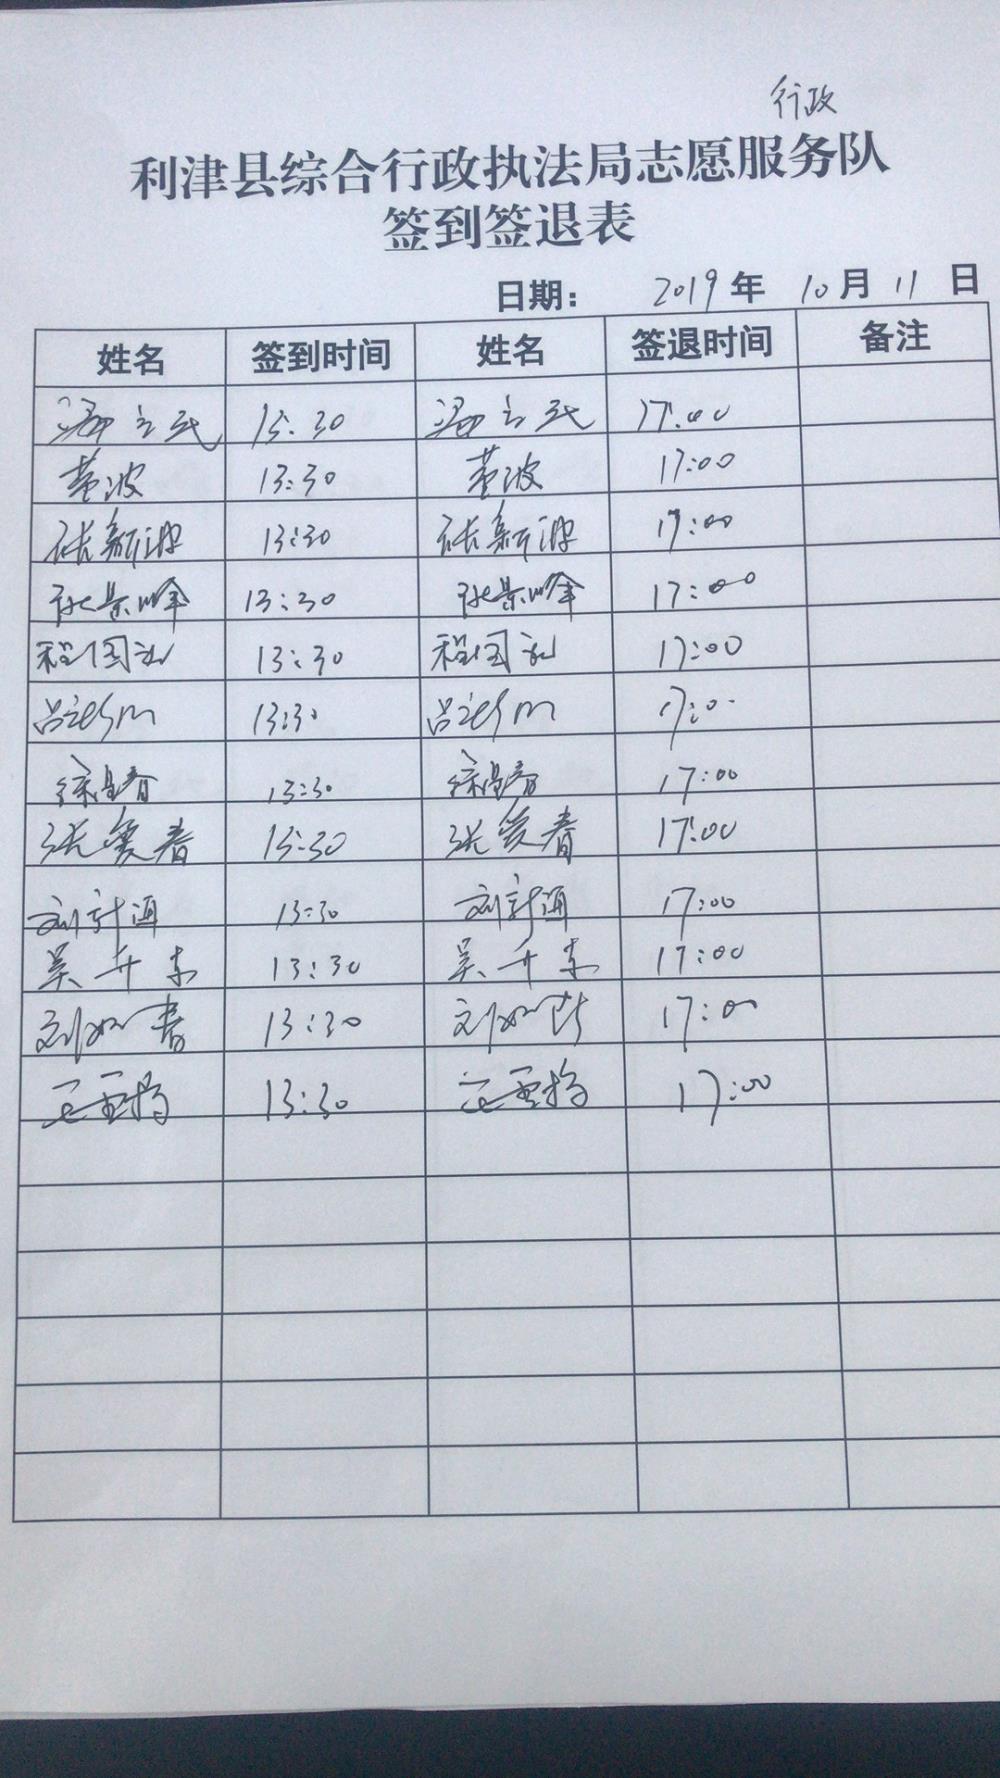 行政
利津县综合行政执法局志愿服务队
签到签退表
日期： 2019年 10月 11日
姓名 签到时间 姓名 签退时间 备注
13:30 17:00
董波 13:30 董波 17:00
张新波 13:30 张新波 17:00
张景峰 13:30 张景峰 17:00
程国礼 13:30 程国礼 17:00
吕 13:30 吕 17:00
徐昌春 13:30 徐昌春 17:00
张爱春 13:30 张爱春 17:00
刘新河 13:30 刘新河 17:00
吴升东 13:30 吴升东 17:00
刘如春 13:30 刘如 17:00
13:30 17:00